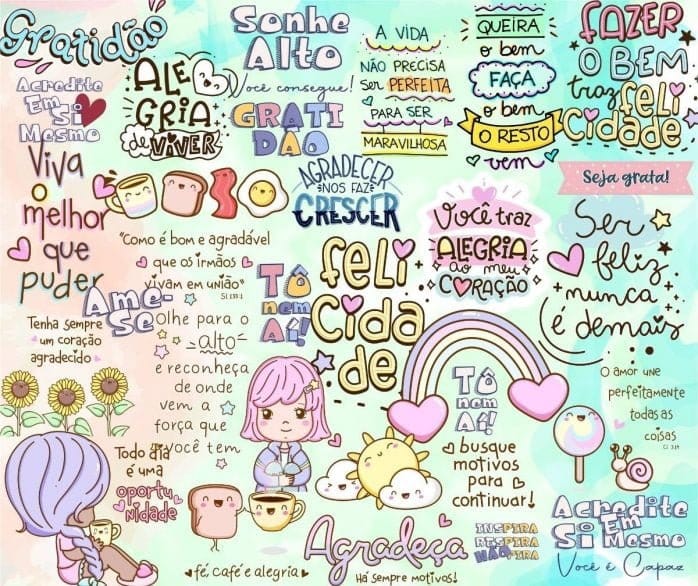 Gratidão
Acredite
Em
Si
Mesmo
ALE
GRIA
de VIVER
Sonhe
Alto
Você consegue!
GRATI
DÃO
A VIDA
NÃO PRECISA
Ser PERFEITA
PARA SER
MARAVILHOSA
QUEIRA
o bem
FAÇA
o bem
O RESTO
vem
FAZER
O BEM
traz
FELI
CIDADE
Seja grata!
Viva
o
melhor
que
puder
AGRADECER
NOS FAZ
CRESCER
"Como é bom e agradável
que os irmãos
vivam em união"
Sl 133:1
Você traz
ALEGRIA
ao meu
CORAÇÃO
Ser
feliz
nunca
é demais
Ame-
Se
TÔ
nem
Aí!
feli
Cida
de
Tenha sempre
um coração
agradecido
Olhe para o
alto
e reconheça
de onde
vem a
força que
você tem
TÔ
nem
Aí!
busque
motivos
para
continuar!
O amor une
perfeitamente
todas as
coisas
Cl 3:14
Todo dia
é uma
oportu
nidade
fé, café e alegria
Agradeça
Há sempre motivos!
INSPIRA
RESPIRA
NÃO PIRA
Acredite
Em
Si Mesmo
Você é Capaz